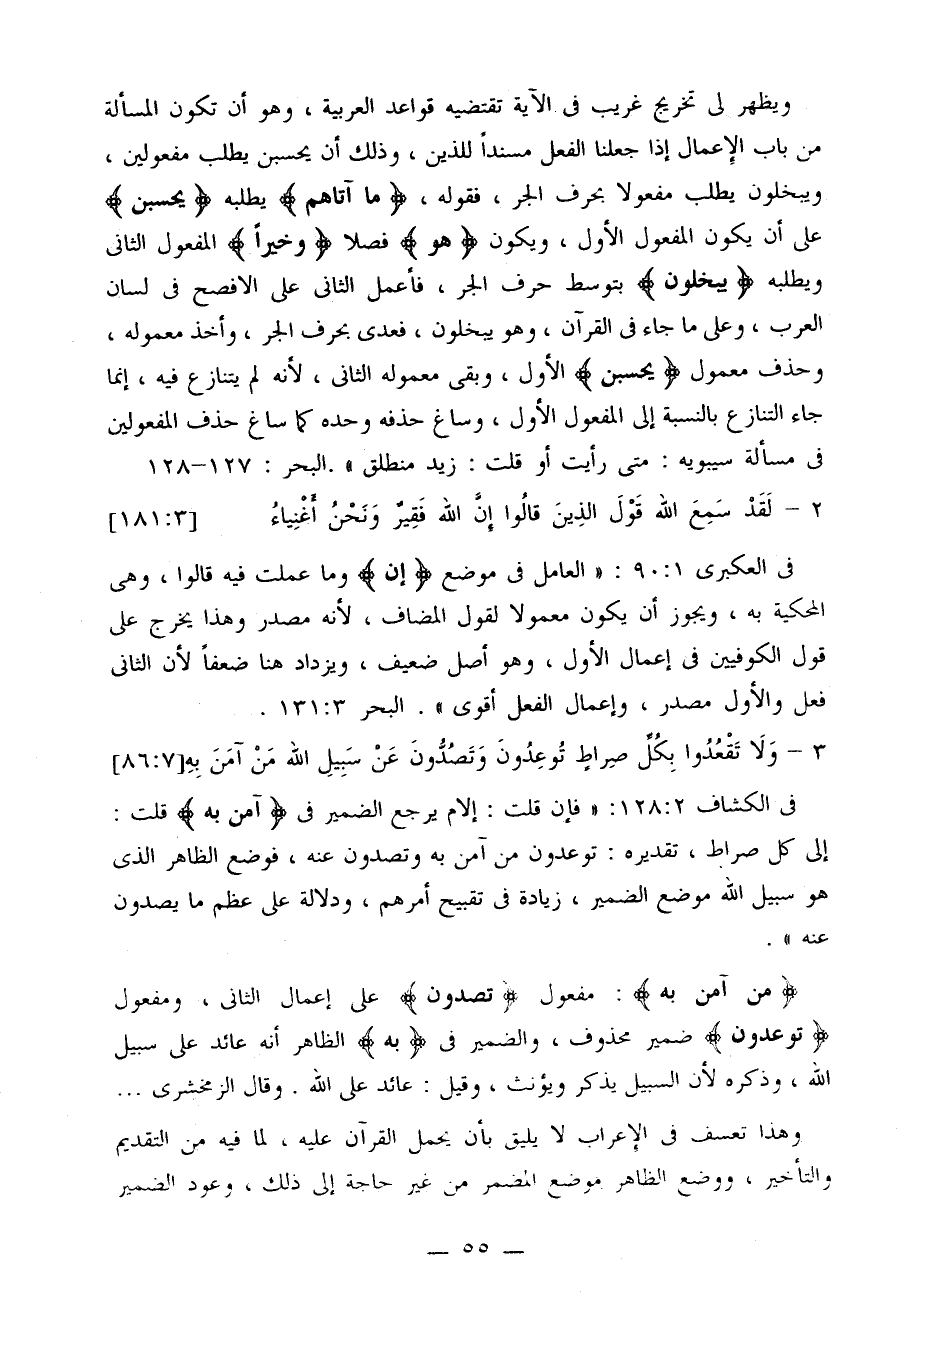 ويظهر لى تخريج غريب فى الآية تقتضيه قواعد العربية ، وهو أن تكون المسألة
من باب الإعمال إذا جعلنا الفعل مسنداً للذين ، وذلك أن يحسبن يطلب مفعولين ،
ويبخلون يطلب مفعولا بحرف الجر ، فقوله ، ﴿ ما آتاهم ﴾ يطلبه ﴿ يحسبن ﴾
على أن يكون المفعول الأول ، ويكون ﴿ هو ﴾ فصلا ﴿ وخيراً ﴾ المفعول الثانى
ويطلبه ﴿ يبخلون ﴾ بتوسط حرف الجر ، فأعمل الثانى على الافصح فى لسان
العرب ، وعلى ما جاء فى القرآن ، وهو يبخلون ، فعدى بحرف الجر ، وأخذ معموله ،
وحذف معمول ﴿ يحسبن ﴾ الأول ، وبقى معموله الثانى ، لأنه لم يتنازع فيه ، إنما
جاء التنازع بالنسبة إلى المفعول الأول ، وساغ حذفه وحده كما ساغ حذف المفعولين
فى مسألة سيبويه : متى رأيت أو قلت : زيد منطلق » .البحر : ١٢٧–١٢٨
٢ – لَقَدْ سَمِعَ الله قَوْلَ الذِينَ قالُوا إِنَّ الله فَقِيرٌ وَنَحْنُ أَغْنِياءُ [١٨١:٣]
فى العكبرى ٩٠:١ : « العامل فى موضع ﴿ إن ﴾ وما عملت فيه قالوا ، وهى
المحكية به ، ويجوز أن يكون معمولا لقول المضاف ، لأنه مصدر وهذا يخرج على
قول الكوفيين فى إعمال الأول ، وهو أصل ضعيف ، ويزداد هنا ضعفاً لأن الثانى
فعل والأول مصدر ، وإعمال الفعل أقوى » . البحر ١٣١:٣ .
٣ – وَلَا تَقْعُدُوا بِكُلِّ صِراطٍ تُوعِدُونَ وَتَصُدُّونَ عَنْ سَبِيلِ الله مَنْ آمَنَ بِهِ[٨٦:٧]
فى الكشاف ١٢٨:٢: « فإن قلت : إلام يرجع الضمير فى ﴿ آمن به ﴾ قلت :
إلى كل صراط ، تقديره : توعدون من آمن به وتصدون عنه ، فوضع الظاهر الذى
هو سبيل الله موضع الضمير ، زيادة فى تقبيح أمرهم ، ودلالة على عظم ما يصدون
عنه » .
﴿ من آمن به ﴾ : مفعول ﴿ تصدون ﴾ على إعمال الثانى ، ومفعول
﴿ توعدون ﴾ ضمير محذوف ، والضمير فى ﴿ به ﴾ الظاهر أنه عائد على سبيل
الله ، وذكره لأن السبيل يذكر ويؤنث ، وقيل : عائد على الله . وقال الزمخشرى ...
وهذا تعسف فى الإعراب لا يليق بأن يحمل القرآن عليه ، لما فيه من التقديم
والتأخير ، ووضع الظاهر موضع المضمر من غير حاجة إلى ذلك ، وعود الضمير
— ٥٥ —